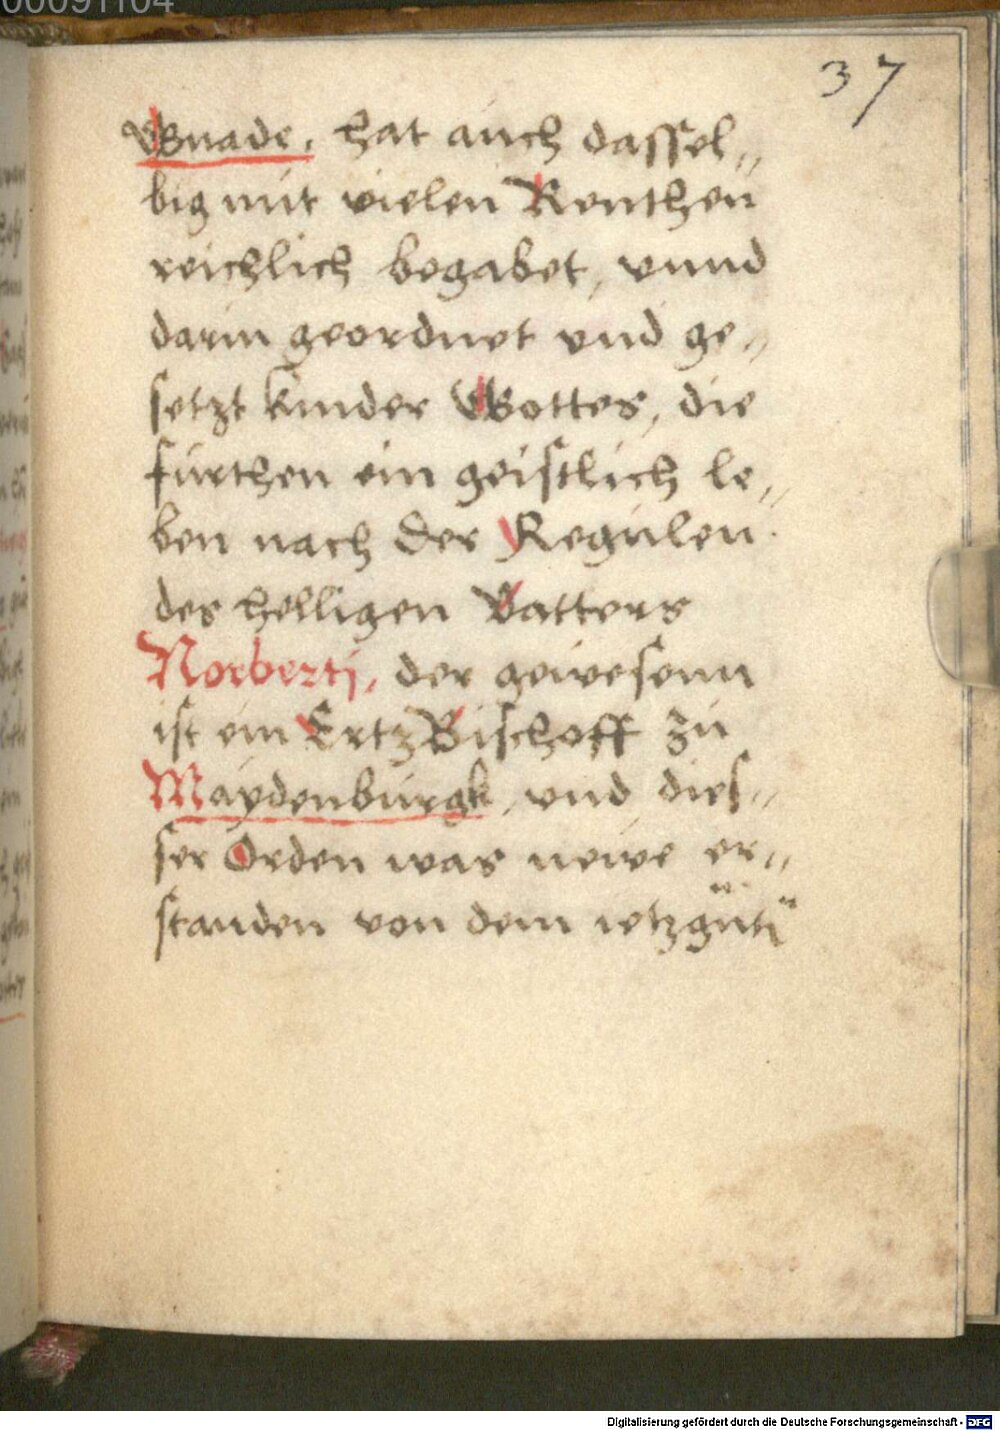 00091104
37
Gnade, hat auch dassel„
big mit vielen Renthen
reichlich begabet, vnnd
darin geordnet vnd ge„
setzt kinder Gottes, die
furthen ein geistlich le„
ben nach der Regulen
des helligen Vatters
Norberti, der gewesenn
ist ein ErtzBischoff zu
Maydenburgk, vnd dies„
ser Orden was newe er„
standen von dem
Digitalisierung gefördert durch die Deutsche Forschungsgemeinschaft - DFG